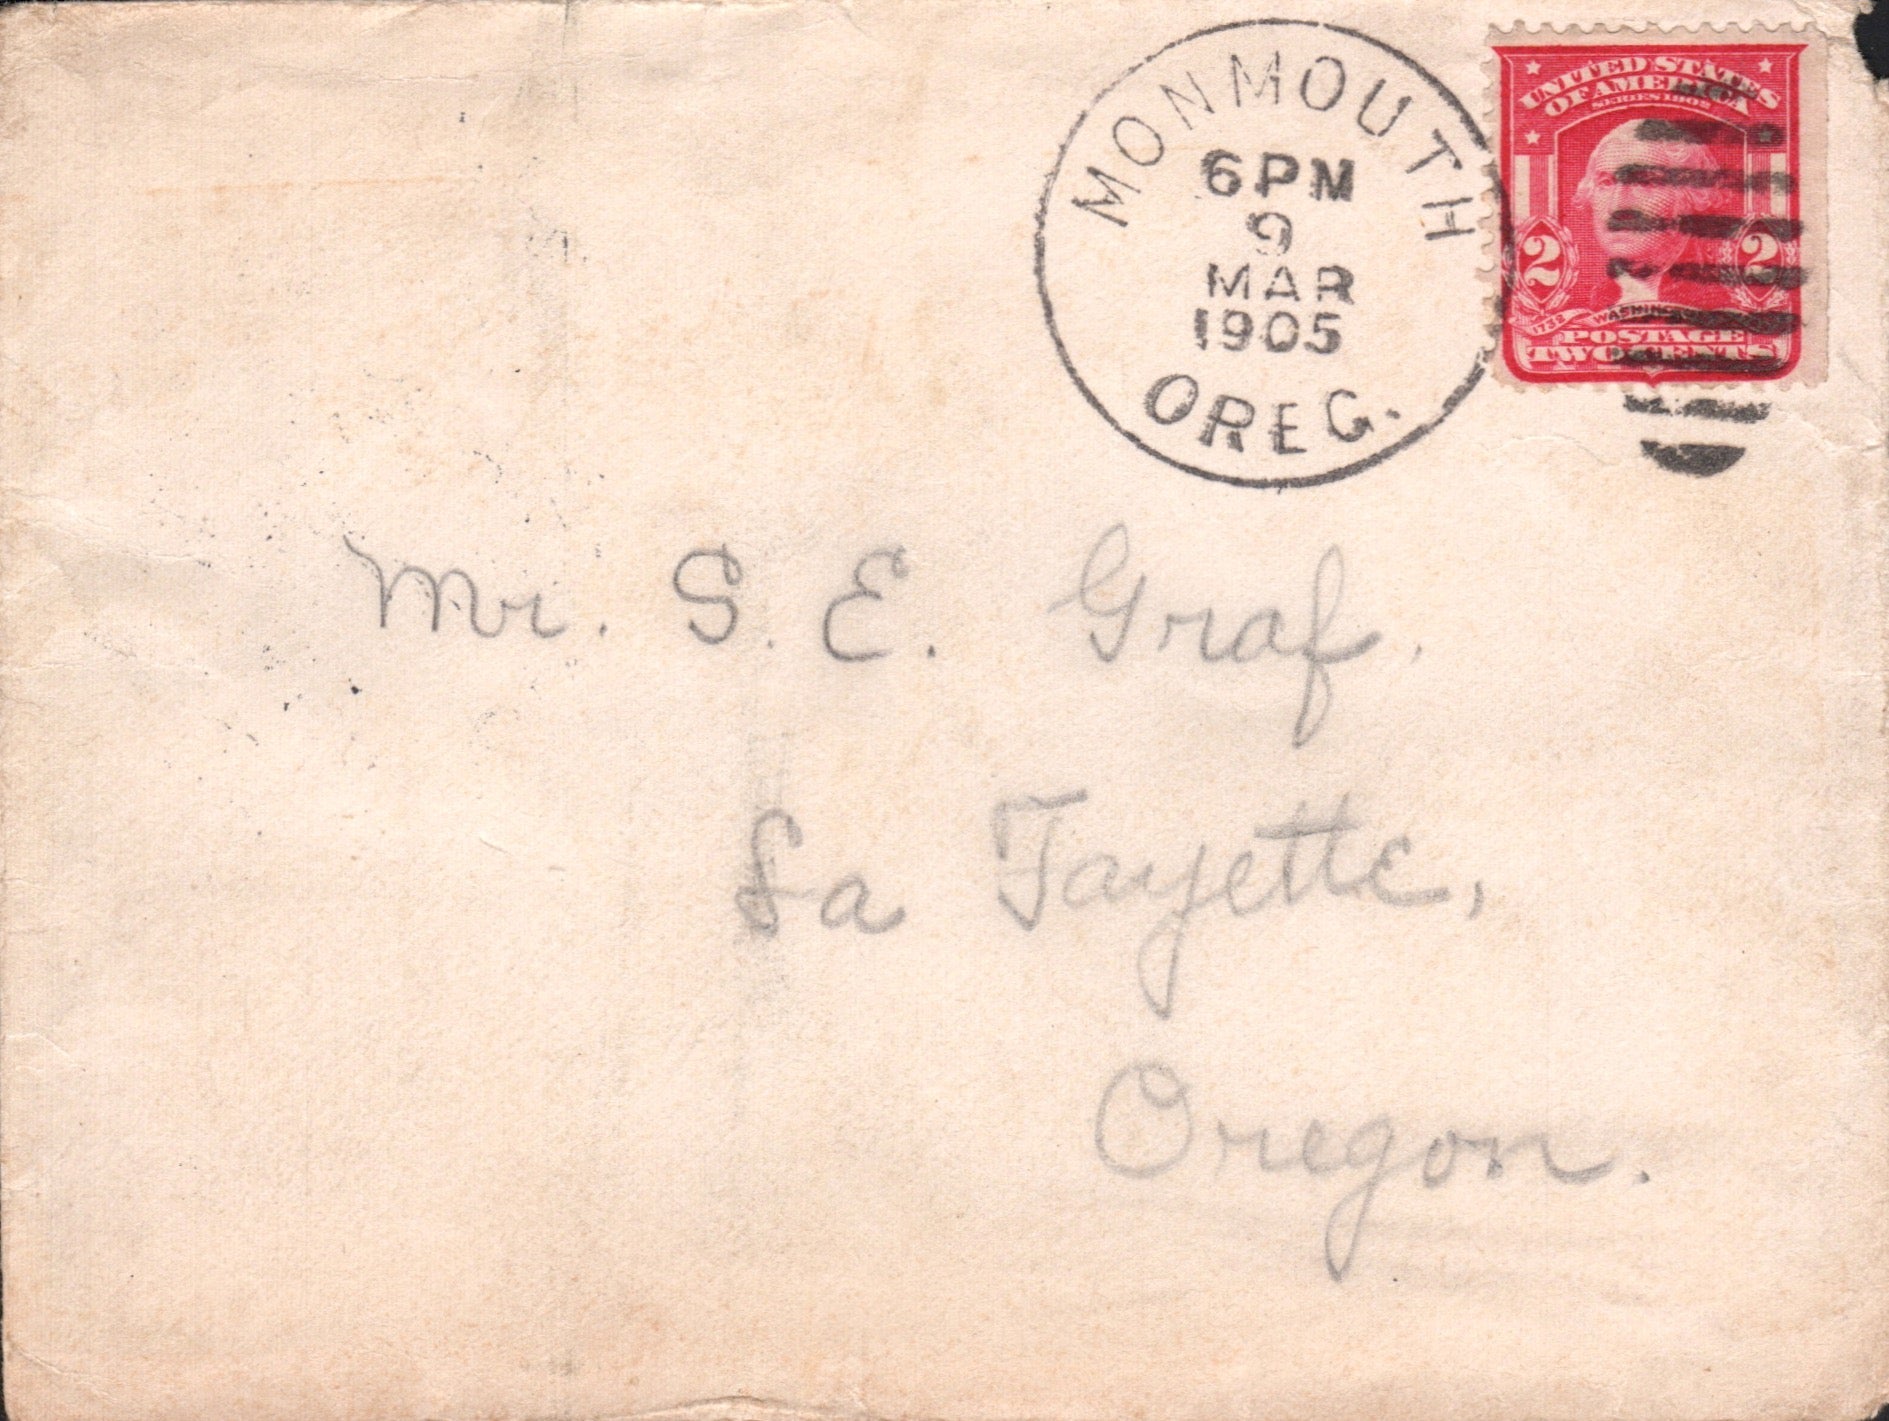 MONMOUTH
6PM
9
MAR
1905
OREG.
UNITED STATES
OF AMERICA
SERIES 1902
2 2
1732 WASHINGTON
POSTAGE
TWO CENTS
Mr. S. E. Graf.
La Fayette,
Oregon.